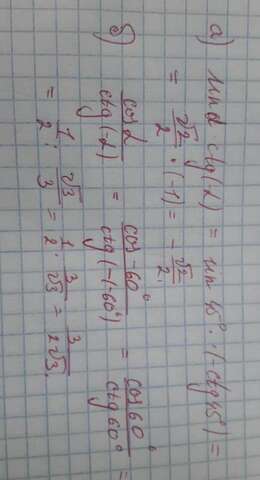 а) sin α ctg(-α) = sin 45°·(-ctg 45°) =
= √2/2 · (-1) = - √2/2.
б) cos α / ctg(-α) = cos -60° / ctg(-1-60°) = cos 60° / ctg 60° =
= 1/2 : √3/3 = 1/2 · 3/√3 = 3/2√3.